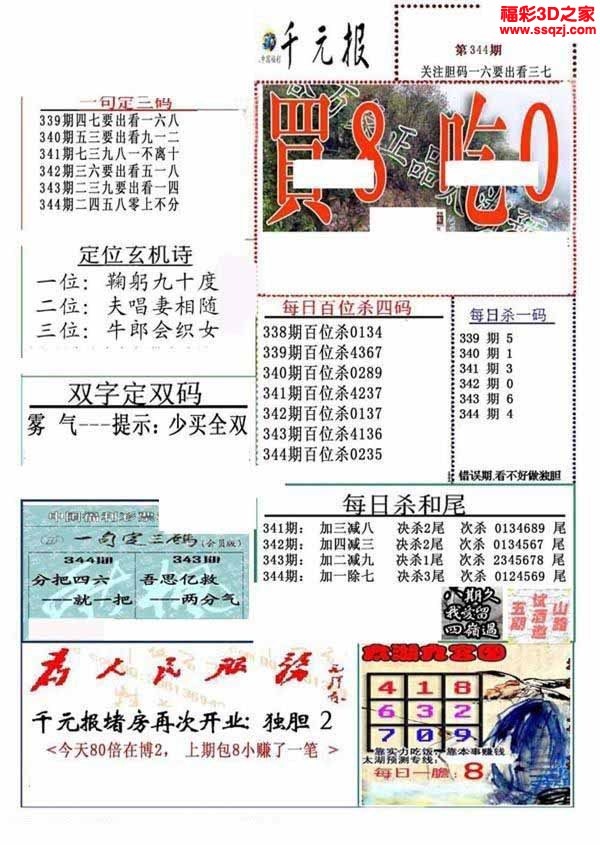 福彩3D之家
www.ssqzj.com
千元报
第344期
关注胆码一六要出看三七
一句定三码
339期四七要出看一六八
340期五三要出看九一二
341期七三九八一不离十
342期三六要出看五一八
343期二三九要出看一四
344期二四五八零上不分
買8吃0
定位玄机诗
一位：鞠躬九十度
二位：夫唱妻相随
三位：牛郎会织女
每日百位杀四码
338期百位杀0134
339期百位杀4367
340期百位杀0289
341期百位杀4237
342期百位杀0137
343期百位杀4136
344期百位杀0235
每日杀一码
339 期 5
340 期 1
341 期 3
342 期 0
343 期 6
344 期 4
错误期,看不好做独胆
双字定双码
雾 气---提示：少买全双
每日杀和尾
341期： 加三减八 决杀2尾 次杀 0134689 尾
342期： 加四减三 决杀2尾 次杀 0134567 尾
343期： 加二减九 决杀1尾 次杀 2345678 尾
344期： 加一除七 决杀3尾 次杀 0124569 尾
中国福利彩票
一句定三码(会员版)
344期 343期
分把四六 吾思亿救
---就一把 ---两分气
八期久
我爱留
四岭過
试酒邀
山路
五期
为人民服务
千元报堵房再次开业：独胆 2
<今天80倍在博2， 上期包8小赚了一笔 >
太湖九宫图
4 1 8
6 3 2
7 0 9
靠实力吃饭，靠本事赚钱
太湖预测专线：
每日一胆：8